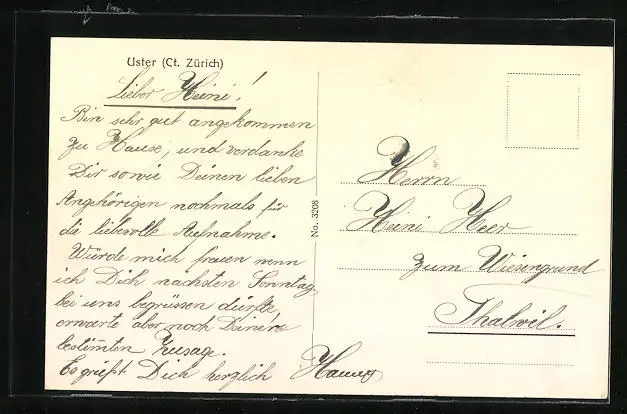 Uster (Ct. Zürich)
Lieber Heini!
Bin sehr gut angekommen
zu Hause, und verdanke
Dir sowie Deinen lieben
Angehörigen nochmals für
die liebevolle Aufnahme.
Würde mich freuen wenn
ich Dich nächsten Sonntag
bei uns begrüssen dürfte,
erwarte aber noch Deine
bestim̄ten Zusage.
Es grüßt Dich herzlich
No. 3208
Herrn
Heini Heer
zum Wiesengrund
Thalwil.